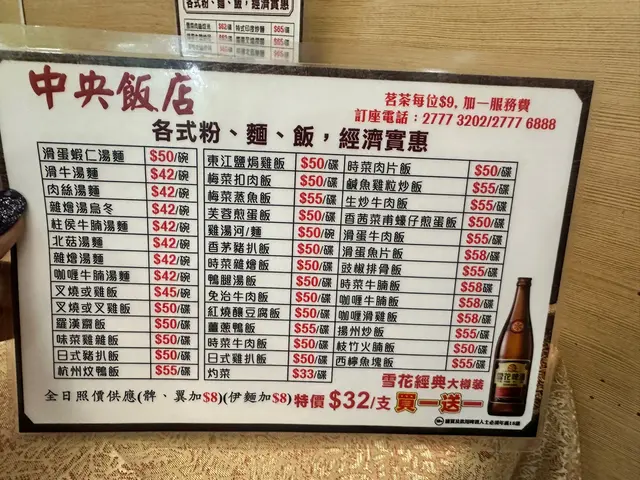 各式粉、麵、飯，經濟實惠
$65/碟
中央飯店
茗茶每位$9, 加一服務費
訂座電話：2777 3202/2777 6888
各式粉、麵、飯，經濟實惠
滑蛋蝦仁湯麵 $50/碗
滑牛湯麵 $42/碗
肉絲湯麵 $42/碗
雜燴湯烏冬 $42/碗
柱侯牛腩湯麵 $42/碗
北菇湯麵 $42/碗
雜燴湯麵 $42/碗
咖喱牛腩湯麵 $42/碗
叉燒或雞飯 $45/碗
叉燒或叉雞飯 $50/碟
羅漢齋飯 $50/碟
味菜雞雜飯 $50/碟
日式豬扒飯 $50/碟
杭州炆鴨飯 $55/碟
東江鹽焗雞飯 $50/碟
梅菜扣肉飯 $50/碟
梅菜蒸魚飯 $55/碟
芙蓉煎蛋飯 $50/碟
雞湯河/麵 $50/碗
香茅豬扒飯 $50/碟
時菜雜燴飯 $50/碟
鴨腿湯飯 $50/碟
免治牛肉飯 $50/碟
紅燒釀豆腐飯 $50/碟
薑蔥鴨飯 $55/碟
時菜牛肉飯 $50/碟
日式雞扒飯 $50/碟
灼菜 $33/碟
時菜肉片飯 $50/碟
鹹魚雞粒炒飯 $55/碟
生炒牛肉飯 $55/碟
香茜菜甫蠔仔煎蛋飯 $50/碟
滑蛋牛肉飯 $55/碟
滑蛋魚片飯 $58/碟
豉椒排骨飯 $55/碟
時菜牛腩飯 $58/碟
咖喱牛腩飯 $58/碟
咖喱滑雞飯 $58/碟
揚州炒飯 $55/碟
枝竹火腩飯 $50/碟
西檸魚塊飯 $55/碟
雪花經典大樽裝
全日照價供應(髀、翼加$8)(伊麵加$8)特價 $32/支 買一送一
雪花啤酒